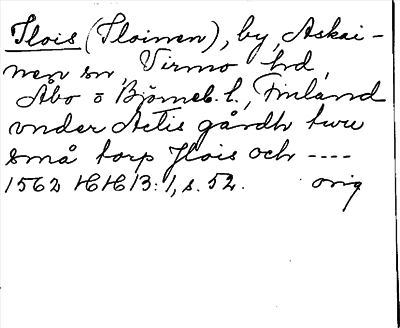 Ilois (Iloinen), by, Askai-
nen sn, Virmo hd,
Åbo o Björneb. l., Finland
vnder Aetis gårdh twu
små torp Ilois och ----
1562 HH 13:1, s. 52. orig